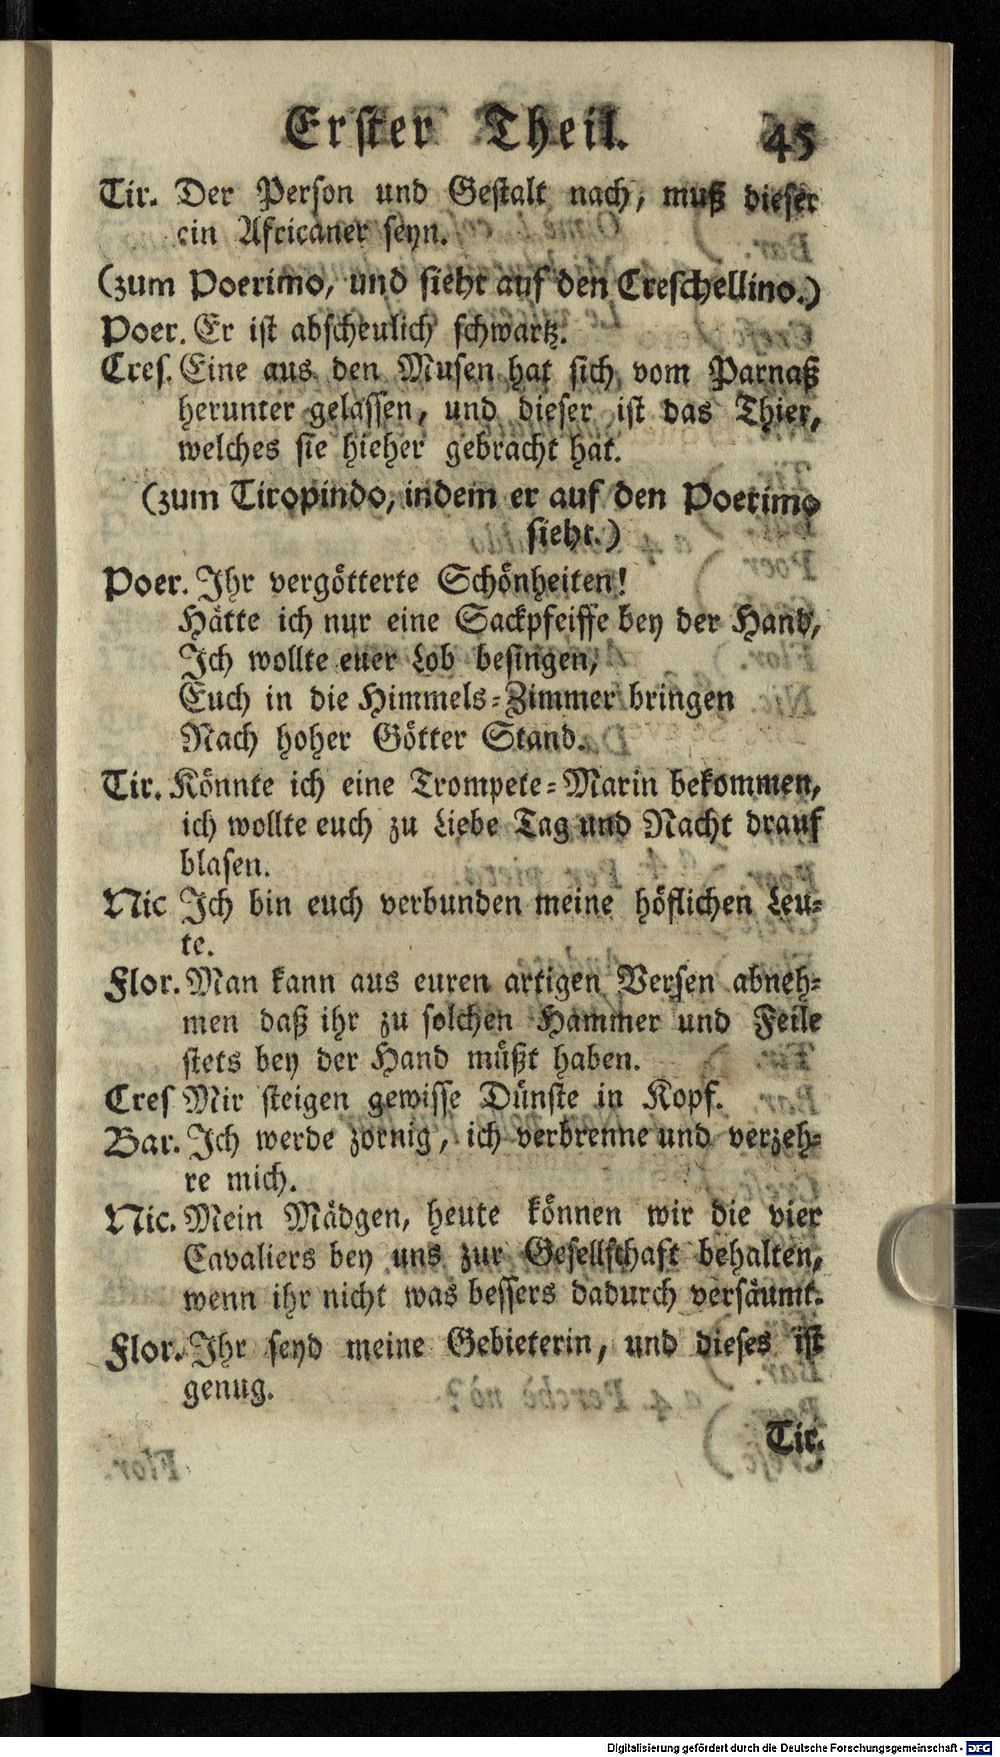 Erster Theil. 45
Tir. Der Person und Gestalt nach, muß dieser
ein Africaner seyn.
(zum Poerimo, und sieht auf den Creschellino.)
Poer. Er ist abscheulich schwartz.
Cres. Eine aus den Musen hat sich vom Parnaß
herunter gelassen, und dieser ist das Thier,
welches sie hieher gebracht hat.
(zum Tiropindo, indem er auf den Poerimo
sieht.)
Poer. Ihr vergötterte Schönheiten!
Hätte ich nur eine Sackpfeiffe bey der Hand,
Ich wollte euer Lob besingen,
Euch in die Himmels-Zimmer bringen
Nach hoher Götter Stand.
Tir. Könnte ich eine Trompete-Marin bekommen,
ich wollte euch zu Liebe Tag und Nacht drauf
blasen.
Nic Ich bin euch verbunden meine höflichen Leu-
te.
Flor. Man kann aus euren artigen Versen abneh-
men daß ihr zu solchen Hammer und Feile
stets bey der Hand müßt haben.
Cres Mir steigen gewisse Dünste in Kopf.
Bar. Ich werde zornig, ich verbrenne und verzeh-
re mich.
Nic. Mein Mädgen, heute können wir die vier
Cavaliers bey uns zur Gesellschaft behalten,
wenn ihr nicht was bessers dadurch versäumt.
Flor. Ihr seyd meine Gebieterin, und dieses ist
genug.
Tir.
Digitalisierung gefördert durch die Deutsche Forschungsgemeinschaft - DFG